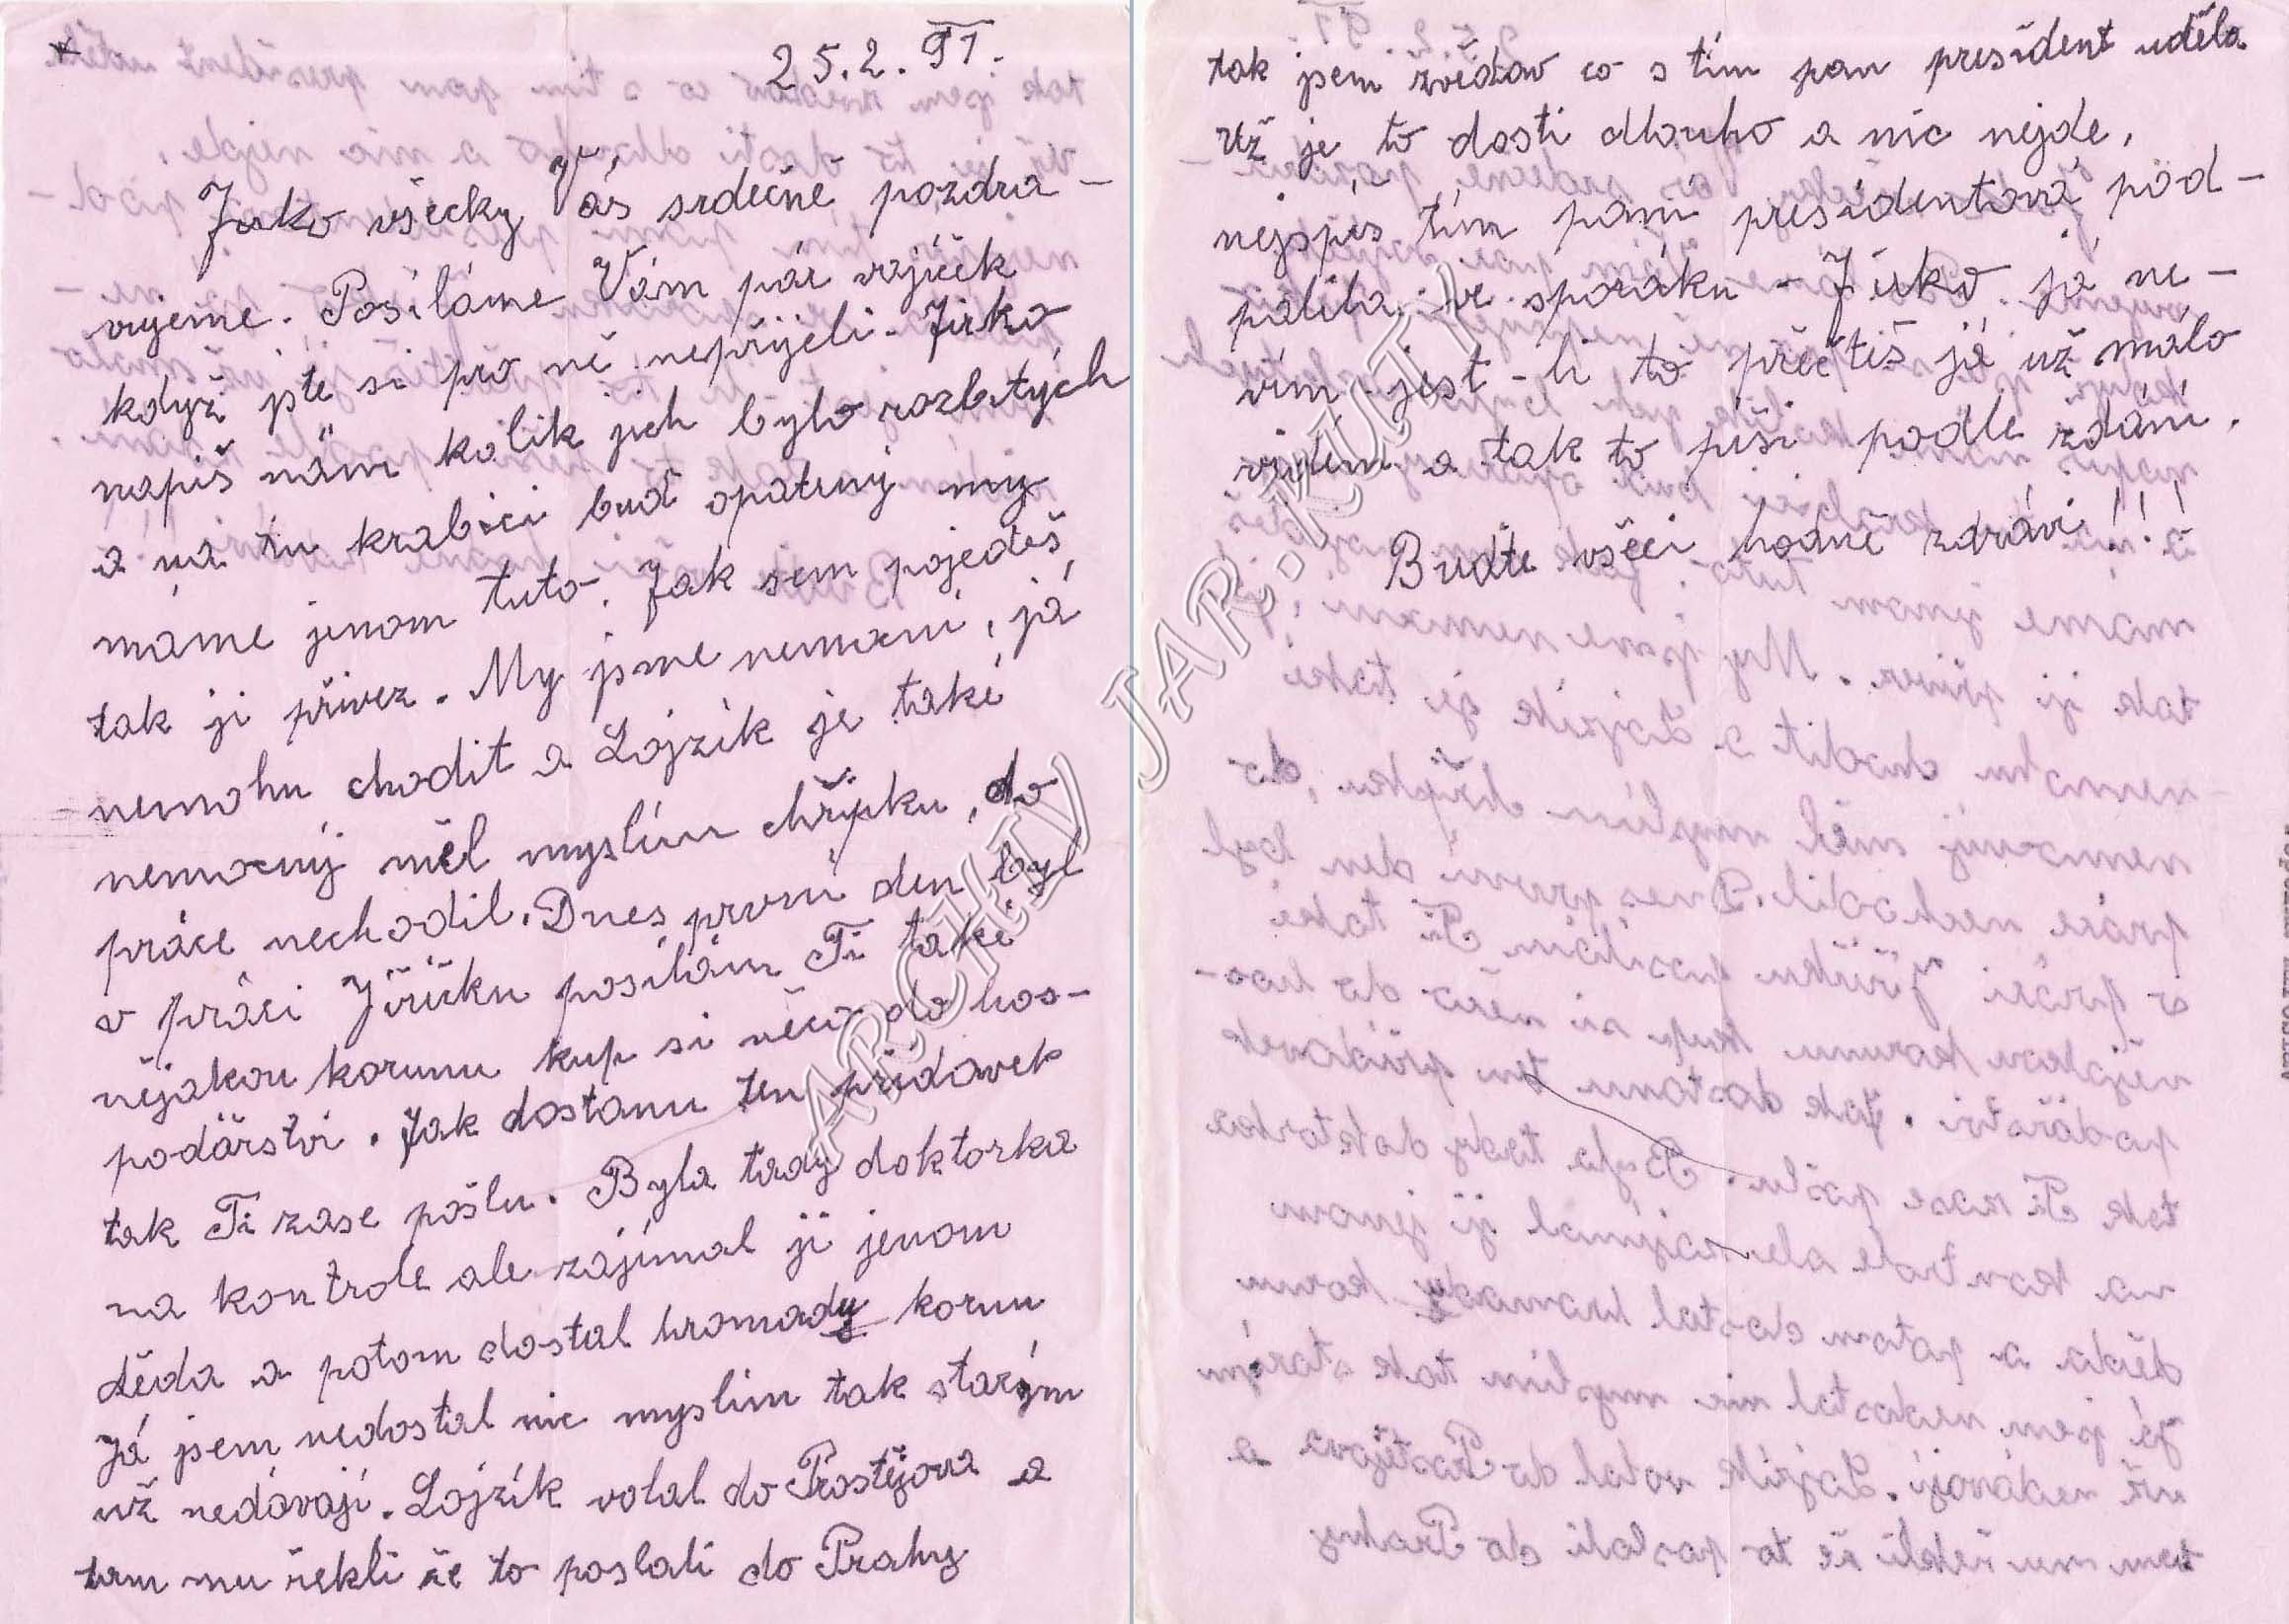 25.2.91.
Jirko všecky Vás srdečně pozdra-
vujeme. Posíláme Vám pár vajíček
když jste si pro ně nepřijeli. Jirko
napiš nám kolik jich bylo rozbitých
a na tu krabici buď opatrný my
máme jenom tuto. Jak sem pojedeš
tak ji přivez. My jsme nemocní, já
nemohu chodit a Lojzík je také
nemocný měl myslím chřipku, do
práce nechodil. Dnes první den byl
v práci Jiříčku posílám Ti také
nějakou korunu kup si něco do hos-
podářství. Jak dostanu ten přídavek
tak Ti zase pošlu. Byla tady doktorka
na kontrole ale zajímal ji jenom
děda a potom dostal hromady korun
Já jsem nedostal nic myslím tak starým
už nedávají. Lojzík volal do Prostějova a
tam mu řekli že to poslali do Prahy
tak jsem zvědav co s tím pan president udělá
Už je to dosti dlouho a nic nejde.
nejspís tím paní presidentová pod-
pálila ve sporáku - Jirko já ne-
vím jest-li to přečtiš já už málo
vidím a tak to píši podle zdání.
Buďte všeci hodně zdrávi!!!
ARCHIV JAR.KUTÝ